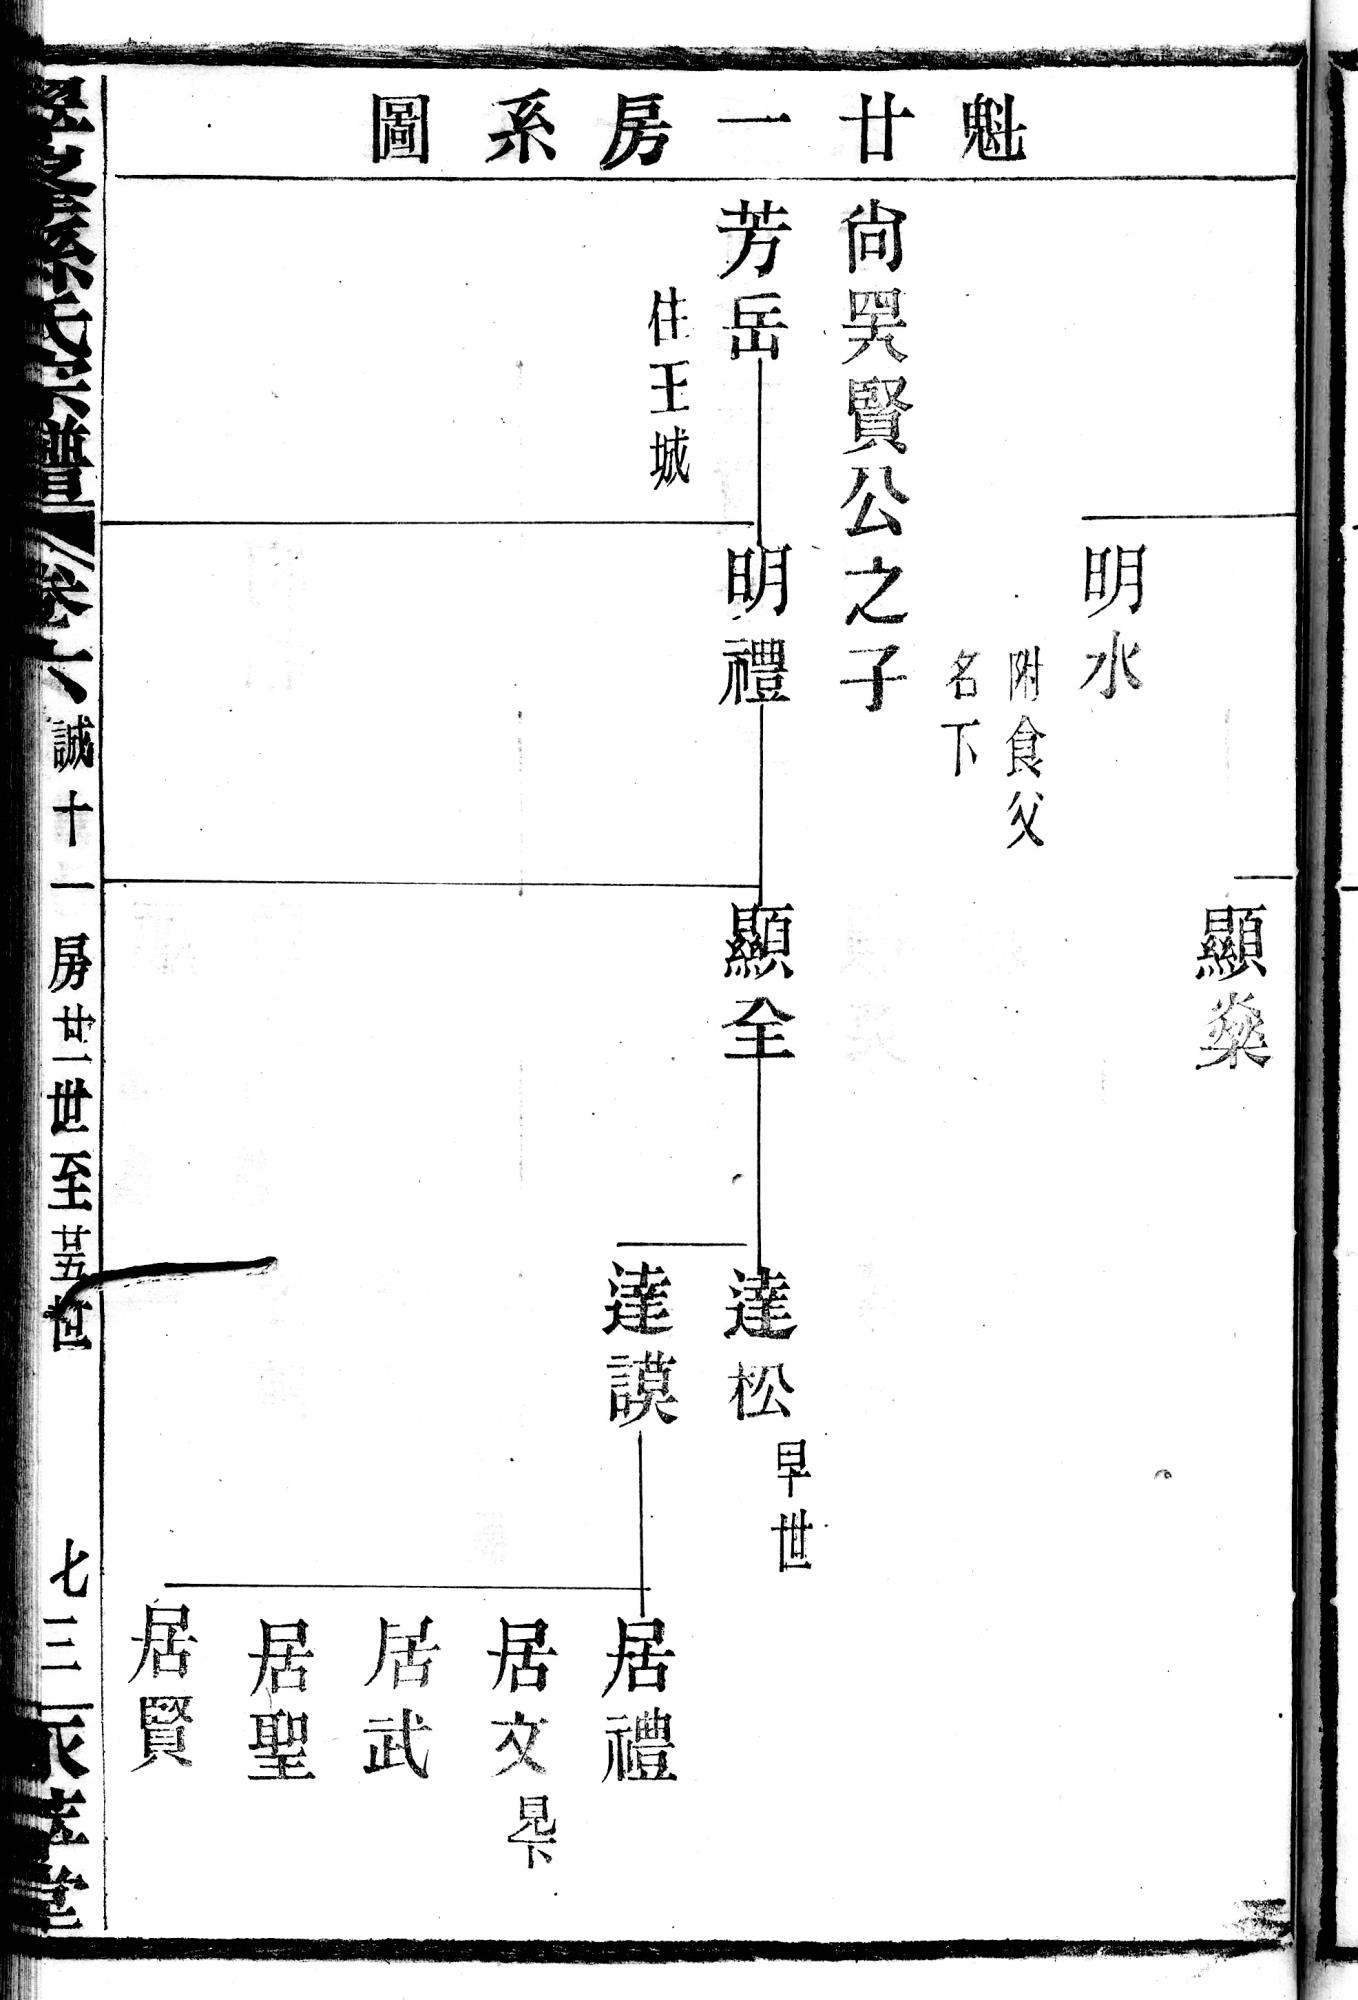 魁廿一房系圖
明水
附食父
名下
顯燊
尚昊賢公之子
芳岳
住王城
明禮
顯全
達松
早世
達謨
居禮
居文
見下
居武
居聖
居賢
孫氏宗譜
卷六
誠十一房廿一世至廿五世
七三
堂